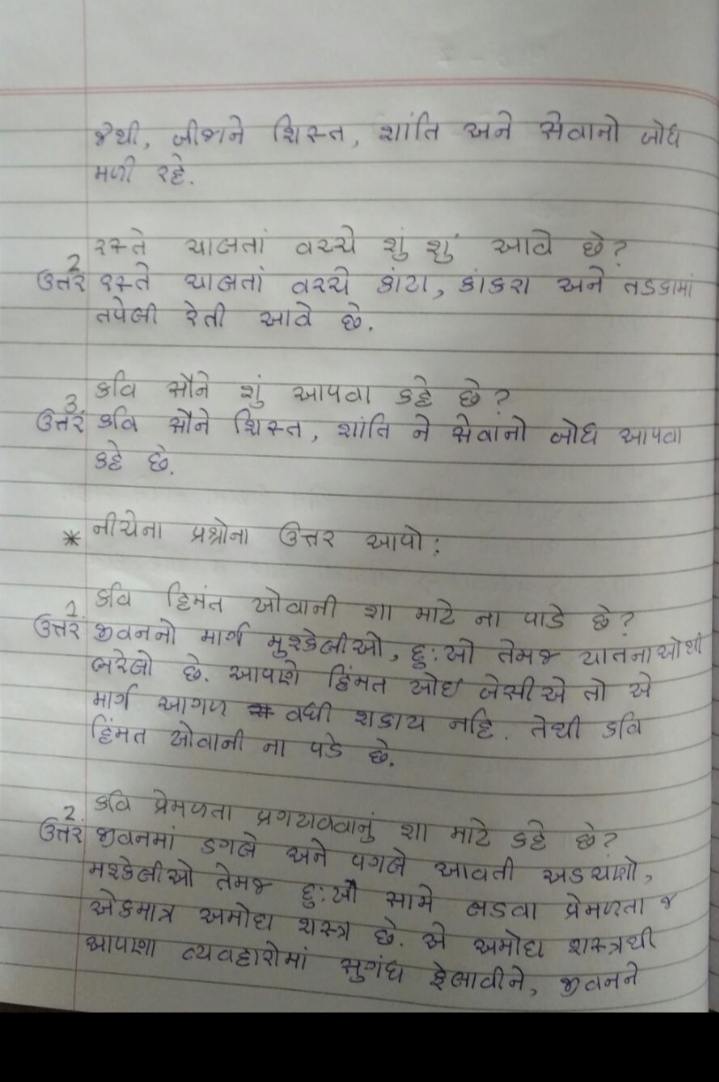 જેથી, બીજાને શિસ્ત, શાંતિ અને સેવાનો બોધ
મળી રહે.
2. રસ્તે ચાલતાં વચ્ચે શું શું આવે છે?
ઉત્તર રસ્તે ચાલતાં વચ્ચે કાંટા, કાંકરા અને તડકામાં
તપેલી રેતી આવે છે.
3. કવિ સૌને શું આપવા કહે છે?
ઉત્તર કવિ સૌને શિસ્ત, શાંતિ ને સેવાનો બોધ આપવા
કહે છે.
* નીચેના પ્રશ્નોના ઉત્તર આપો:
1. કવિ હિમંત ખોવાની શા માટે ના પાડે છે?
ઉત્તર જીવનનો માર્ગ મુશ્કેલીઓ, દુ:ખો તેમજ યાતનાઓથી
ભરેલો છે. આપણે હિંમત ખોઇ બેસીએ તો એ
માર્ગ આગળ વધી શકાય નહિ. તેથી કવિ
હિંમત ખોવાની ના પડે છે.
2. કવિ પ્રેમળતા પ્રગટાવવાનું શા માટે કહે છે?
ઉત્તર જીવનમાં ડગલે અને પગલે આવતી અડચણો,
મશ્કેલીઓ તેમજ દુ:ખો સામે લડવા પ્રેમળતા જ
એકમાત્ર અમોઘ શસ્ત્ર છે. એ અમોઘ શસ્ત્રથી
આપણા વ્યવહારોમાં સુગંધ ફેલાવીને, જીવનને